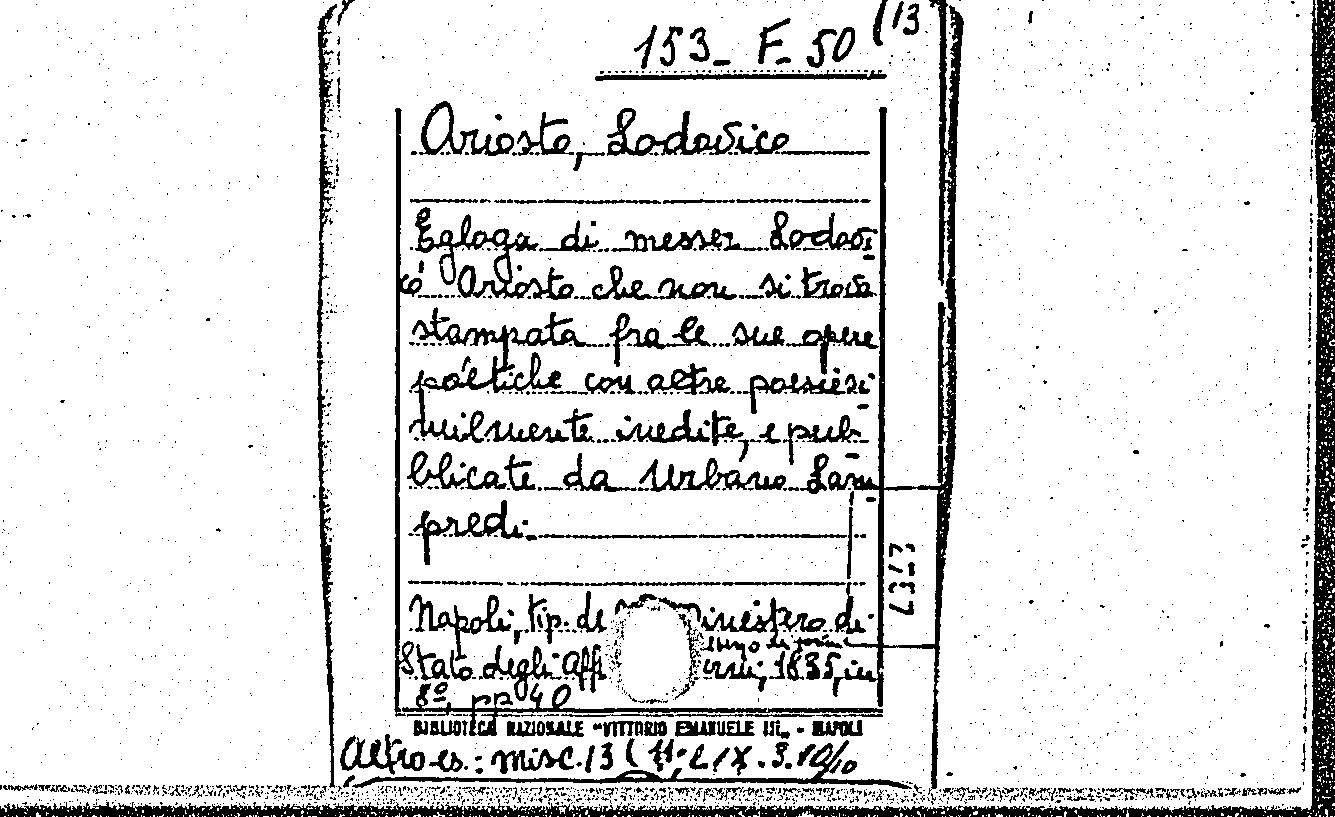 153_ F_ 50 (13
Ariosto, Lodovico
Egloga di messer Lodovi
co Ariosto che non si trova
stampata fra le sue opere
poetiche con altre poesie si
milmente inedite, e pub-
blicate da Urbano Lam
predi.
Napoli, tip. de inistero di
Stato degli Aff erni, 1835, in
8º, pp 40
BIBLIOTECA NAZIONALE "VITTORIO EMANUELE III" - NAPOLI
Altro es.: misc. 13